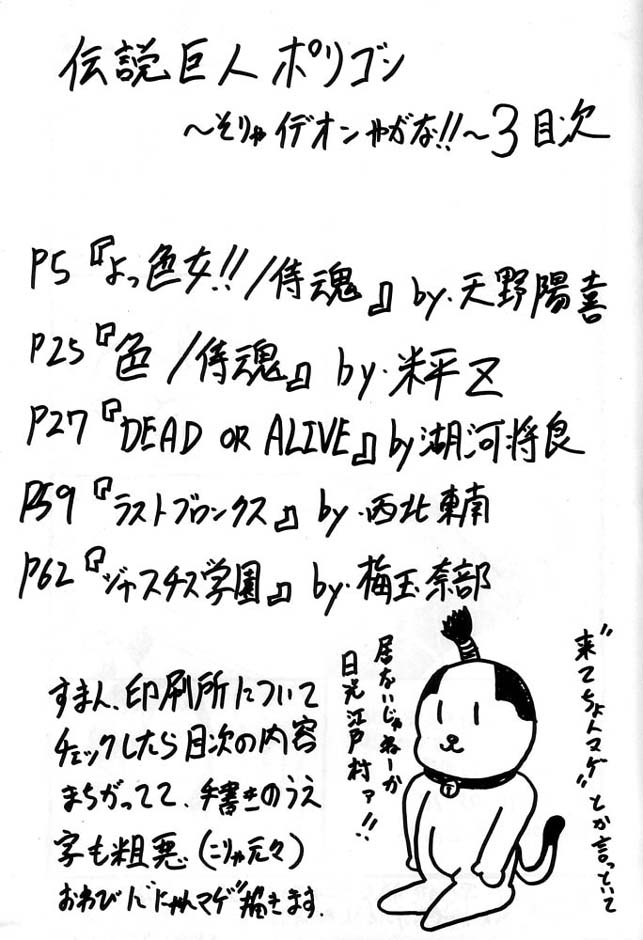 伝説巨人ポリゴン
～そりゃイデオンやがな!!～3目次
P5『よっ色女!!/侍魂』by.天野陽喜
P25『色/侍魂』by.米平乙
P27『DEAD OR ALIVE』by湖河将良
P59『ラストブロンクス』by.西北東南
P62『ジャスチス学園』by.梅玉奈部
すまん、印刷所について
チェックしたら目次の内容
まちがってて、手書きのうえ
字も粗悪（こりゃ元々）
おわびに"にゃんマゲ"描きます.
"来てちょんマゲ"とか言っといて
居ないじゃねーか
日光江戸村ァ!!